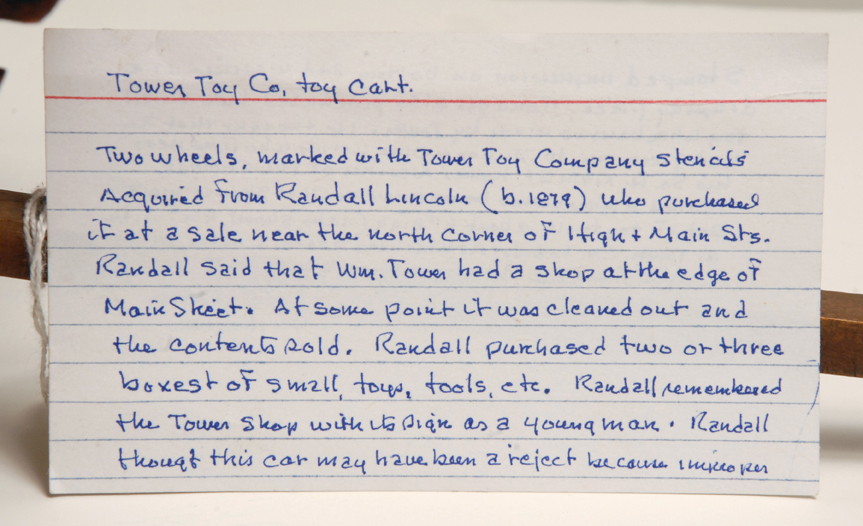 Tower Toy Co, toy cart.
Two wheels, marked with Tower Toy Company stencils
Acquired from Randall Lincoln (b.1879) who purchased
it at a sale near the north corner of High + Main Sts.
Randall said that Wm. Tower had a shop at the edge of
Main Street. At some point it was cleaned out and
the contents sold. Randall purchased two or three
boxest of small, toys, tools, etc. Randall remembered
the Tower shop with its sign as a young man. Randall
thougt this car may have been a reject because